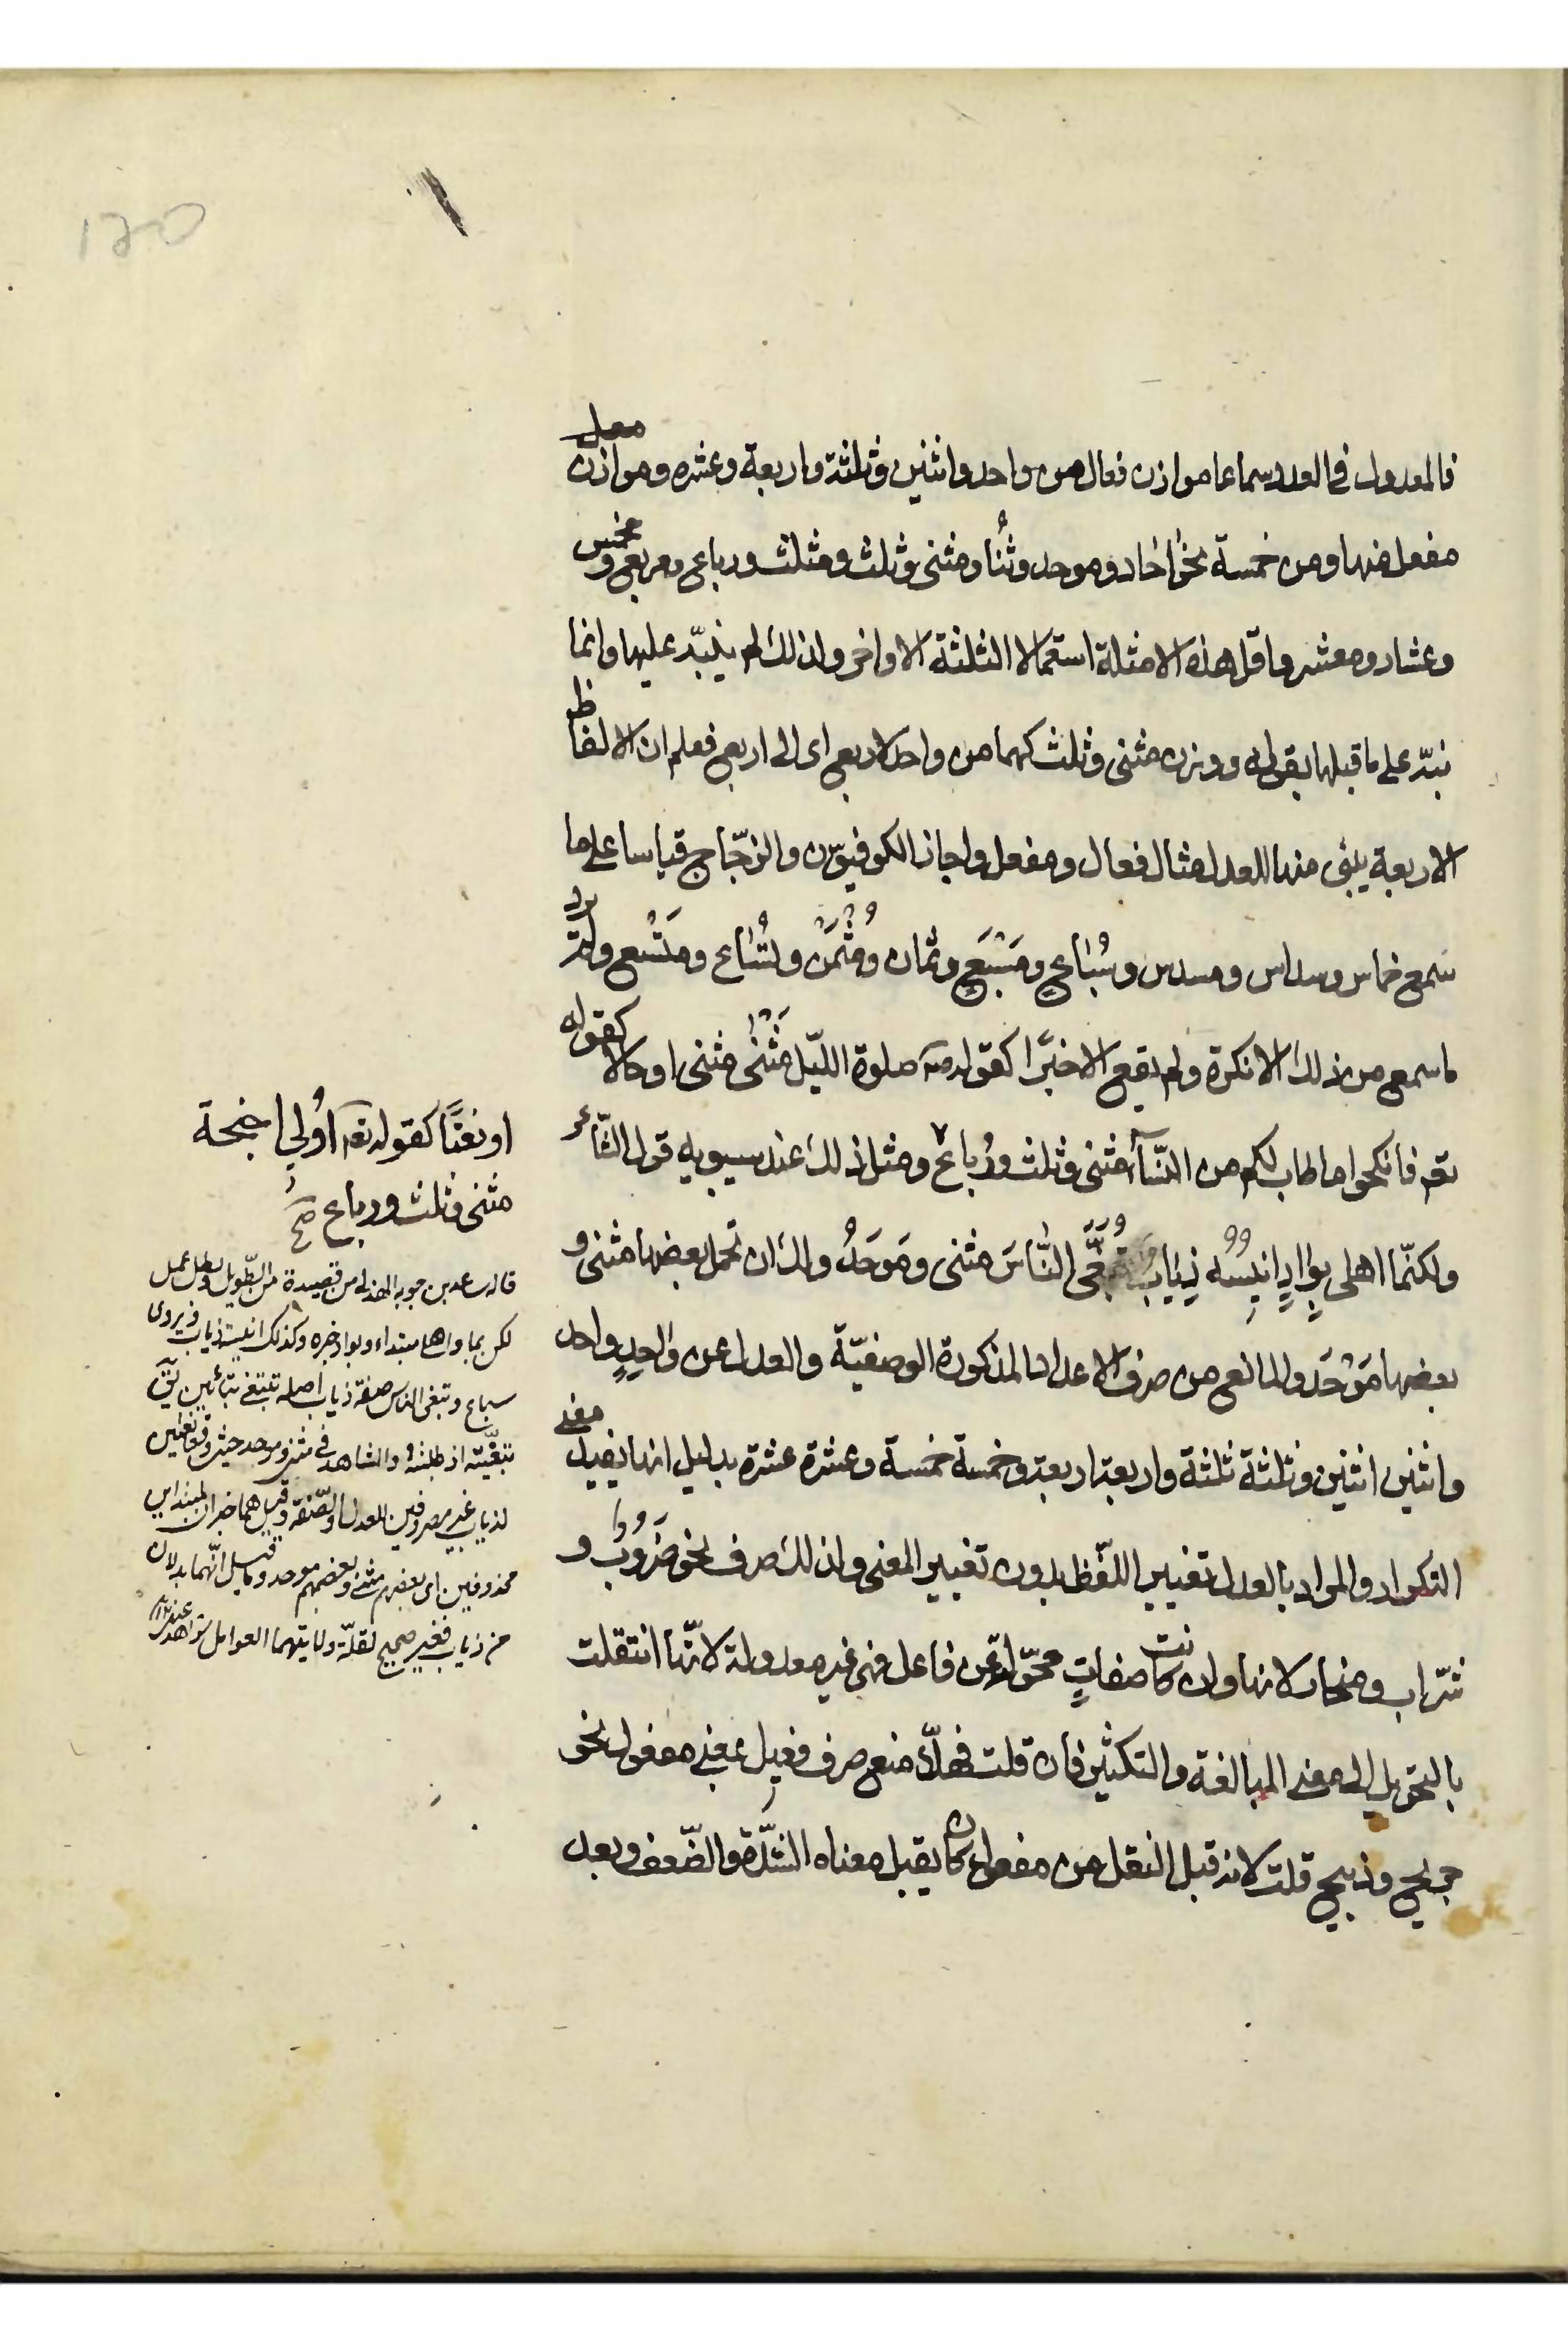 فالمعدول فى العدد سماعا موازن فعال من واحد واثنين وثلثة واربعة وعشره وموازن
مفعل منها ومن خمسة نحو احاد وموحد وثُنا ومثنى وثلث ومثلث ورباع ومربع ومخمس
وعشار ومعشر واقل هذه الامثلة استعمالا الثلثة الاواخر ولذلك لم ينبّه عليها وانما
نبّه على ما قبلها بقوله ووزن مثنى وثلث كهما من واحد لاربع اى الى اربع فعلم ان الالفاظ
الاربعة يبنى منها للعدل مثال فعال ومفعل واجاز الكوفيّون والزجّاج قياسا على ما
سمع خماس وسداس ومسدس وسُبَاع ومَسْبَع وثمان ومُثْمَن وتُسَاع ومَتْسَع ولم يرد
ما سمع من ذلك الا نكرة ولم يقع الا خبرًا كقوله صلوة الليّل مَثْنَى مثنى او حالا كقوله
تعم فانكحوا ما طاب لكم من النّسآء مثنى وثلث ورُباع ومثل ذلك عند سيبويه قول الشّاعر
ولكنّما اهلى بِوَادٍ انِيسُه ذِيَابٌ تُبَغَّى النّاسَ مثنى ومَوحَدُ والك ان تحمل بعضها مثنى و
بعضها مَوْحَد والمانع من صرف الاعداد المذكورة الوصفيّة والعدل عن واحِدٍ واحد
واثنين اثنين وثلثة ثلثة واربعة اربعة وخمسة خمسة وعشرة عشرة بدليل انها يفيد معنى
التكرار والمراد بالعدل تغيير اللّفظ بدون تغيير المعنى ولذلك صرف نحو ضَرُوب و
شرّاب ومنحار لانها وان كانت صفاتٍ محوّلة عن فاعل فهى غير معدولة لانّها انتقلت
بالتحويل الى معنى المبالغة والتكثير فان قلت فهلّا منع صرف فعيل بمعنى مفعول نحو
جريح وذبيح قلت لانه قبل النقل من مفعول كان يقبل معناه الشدّة والضّعف وبعد
او نعتًا كقوله تعم اُولى اجنحة
مثنى وثلث ورباع صح
قاله ساعدبن جويه الهذلى من قصيدة من الطّويل وبطل عمل
لكن بما واهلى مبتداء وبواد خبره وكذلك انيسه ذياب ويروى
سباع وتبغى الناس صفة ذياب اصله تتبغى بتائين
تبغّيته اذ طلبته والشاهد فى مثنى وموحد حيث وقعا نعتين
لذياب غير مصروفين للعدل والصّفة وقيل هما خبران لمبتداين
محذوفين اى بعضهم مثنى وبعضهم موحد وقيل انّهما بدلان
من ذياب فغير صحيح لقلّة ولايتهما العوامل شواهد